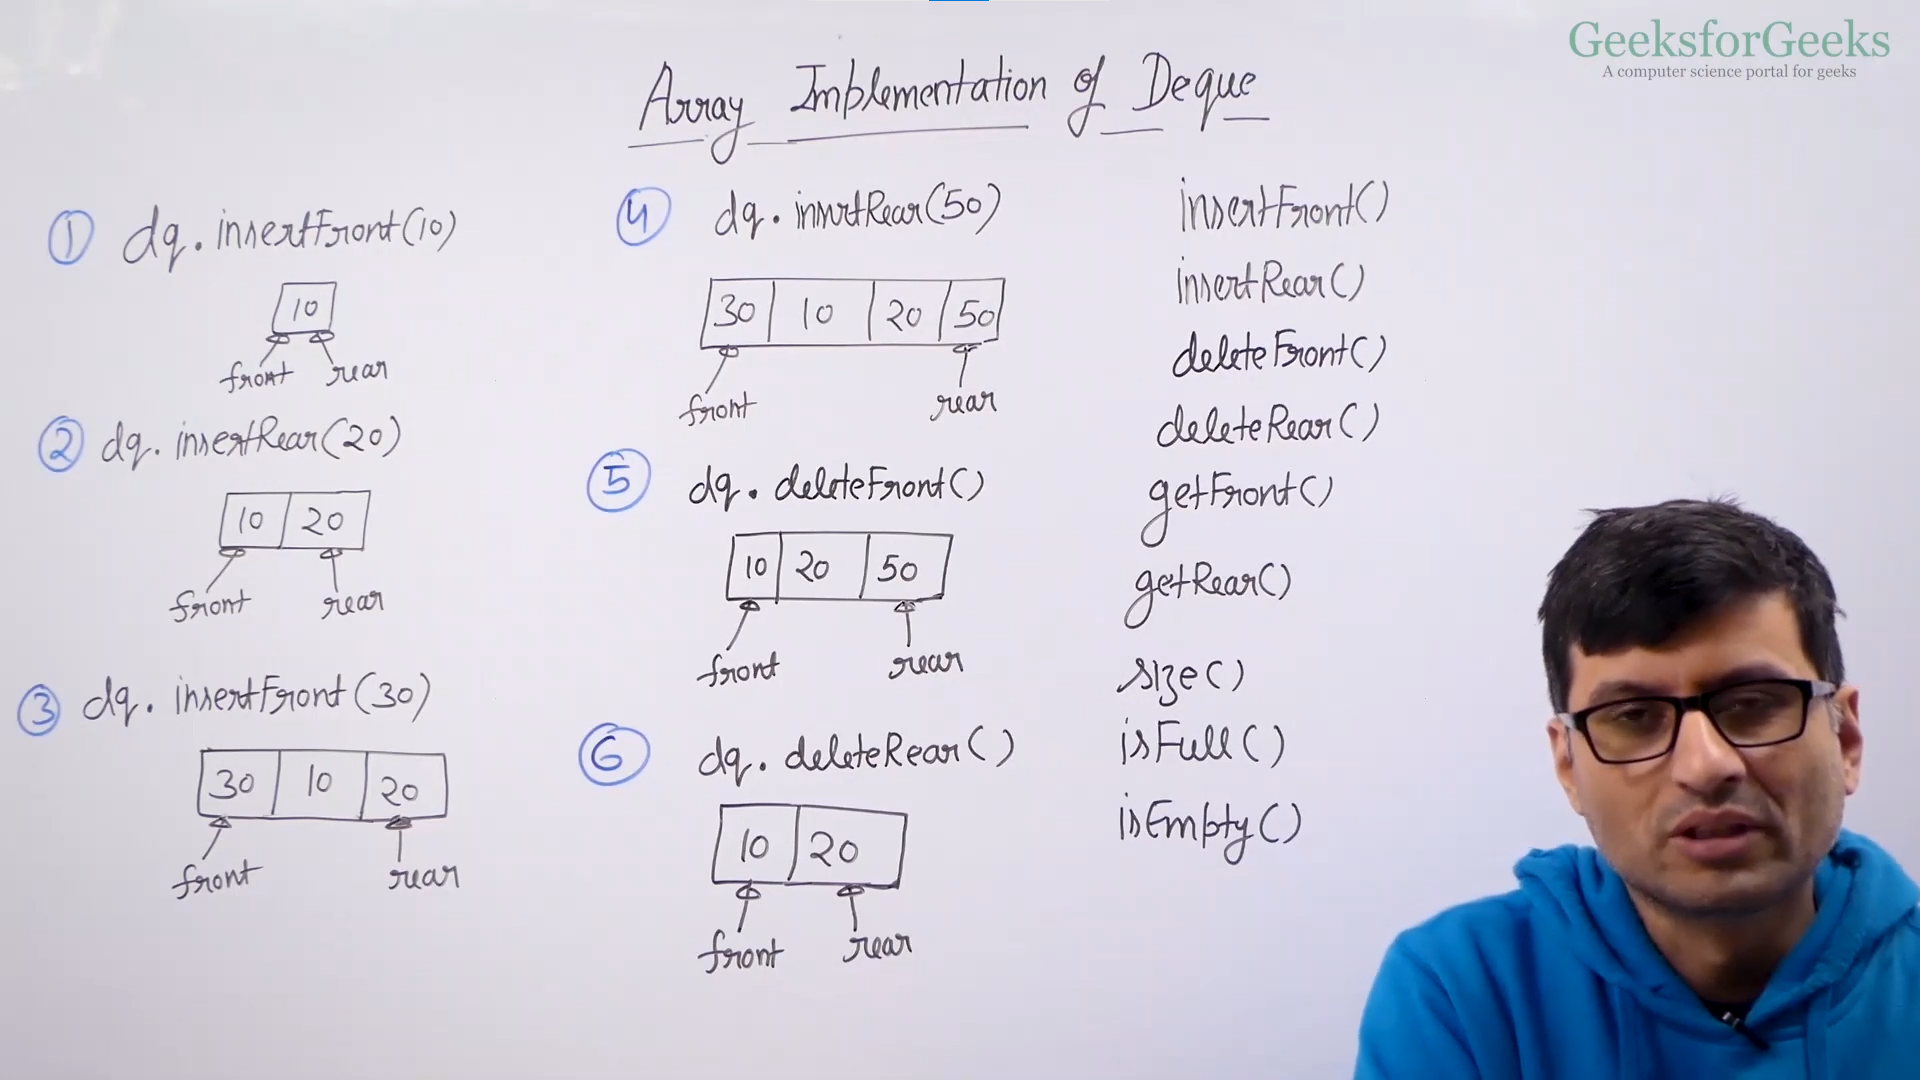 GeeksforGeeks
A computer science portal for geeks
Array Implementation of Deque
① dq.insertFront(10)
10
front rear
② dq.insertRear(20)
10 20
front rear
③ dq.insertFront(30)
30 10 20
front rear
④ dq.insertRear(50)
30 10 20 50
front rear
⑤ dq.deleteFront()
10 20 50
front rear
⑥ dq.deleteRear()
10 20
front rear
insertFront()
insertRear()
deleteFront()
deleteRear()
getFront()
getRear()
size()
isFull()
isEmpty()